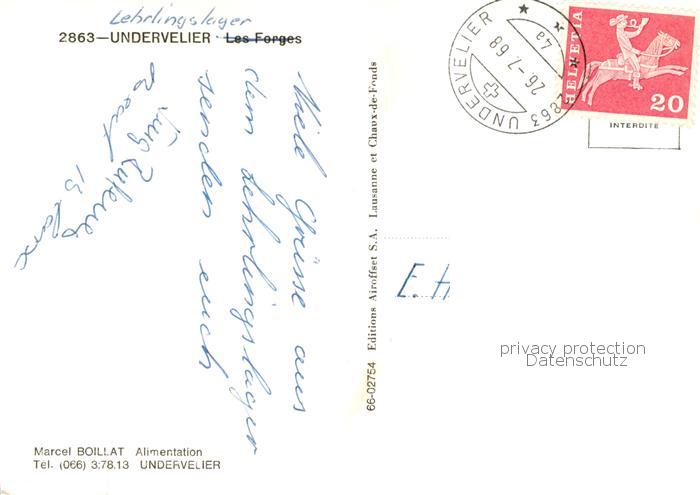 Lehrlingslager
2863—UNDERVELIER · Les Forges
Viele Grüsse aus
dem Lehrlingslager
senden euch
Marcel BOILLAT Alimentation
Tél. (066) 3.78.13 UNDERVELIER
66-02754 Editions Airoffset S.A. Lausanne et Chaux-de-Fonds
2863 UNDERVELIER
26-7.68
HELVETIA
20
INTERDITE
E. H
privacy protection
Datenschutz